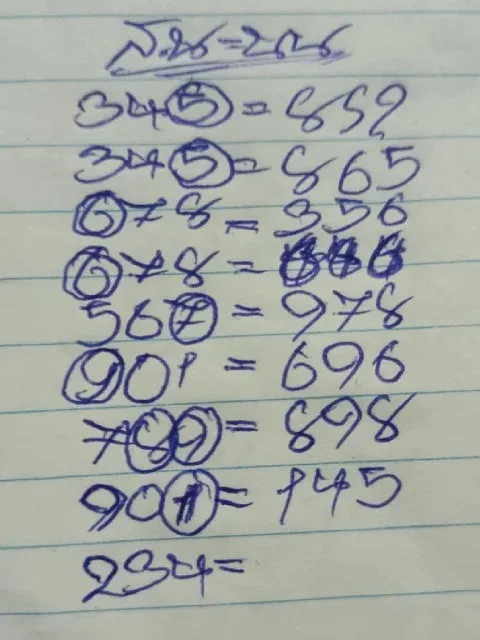 ส.น=บน
345=859
345=865
678=356
678=
567=978
901=696
789=898
901=145
234=